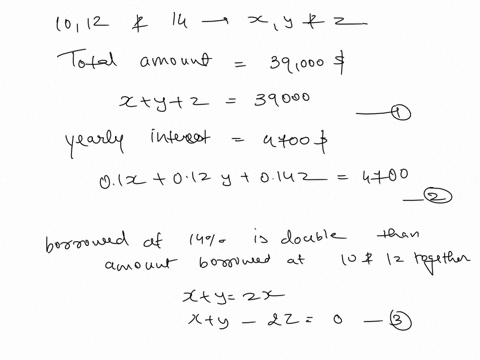 10, 12 & 14 → x, y & z
Total amount = 39,000 $
x + y + z = 39000 —①
yearly interest = 4700 $
0.1x + 0.12 y + 0.14z = 4700 —②
borrowed at 14% is double than
amount borrowed at 10 & 12 together
x + y = 2x
x + y - 2z = 0 —③